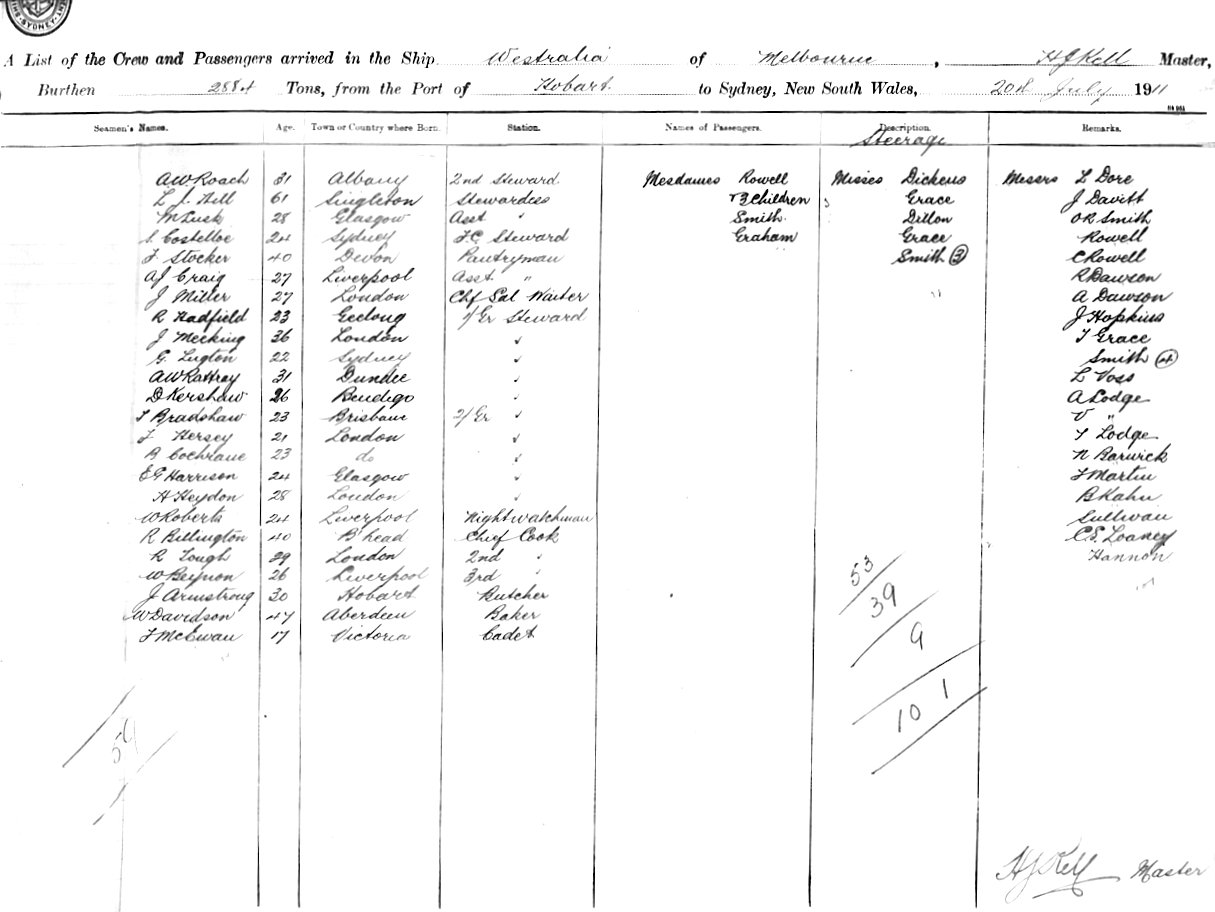 SYDNEY
A List of the Crew and Passengers arrived in the Ship Westralia of Melbourne, H J Kell Master,
Burthen 2884 Tons, from the Port of Hobart to Sydney, New South Wales, 20th July 1911
Seamen's Names. Age. Town or Country where Born. Station. Names of Passengers. Description. Remarks.
Steerage
A W Roach 31 Albany 2nd Steward Mesdames Rowell Misses Dickens Messrs L Dore
L J Hill 61 Singleton Stewardess 3 Children Grace J Davitt
M Lusk 28 Glasgow Asst " Smith Dillon O R Smith
S Costelloe 24 Sydney F.C. Steward Graham Grace Rowell
F Stocker 40 Devon Pantryman Smith (3) C Rowell
A J Craig 27 Liverpool Asst " R Dawson
J Miller 27 London Chf Sal Waiter A Dawson
R Hadfield 23 Geelong 1/Gr Steward J Hopkins
J Mecking 36 London " T Grace
G. Lugton 22 Sydney " Smith (4)
A W Rattray 31 Dundee " L Voss
D Kershaw 26 Bendigo " A Lodge
T Bradshaw 23 Brisbane 2/Gr " V "
F Hersey 21 London " T Lodge
B Cochrane 23 do " N Barwick
E G Harrison 24 Glasgow " F Martin
H Heydon 28 London " B Kahn
W Roberts 24 Liverpool Nightwatchman Sullivan
R Billington 40 B'head Chief Cook C.E. Loaney
R Tough 29 London 2nd " Hannon
W Beynon 26 Liverpool 3rd "
J Armstrong 30 Hobart Butcher
W Davidson 47 Aberdeen Baker
F McEwan 17 Victoria Cadet
53
39
9
101
H J Kell Master